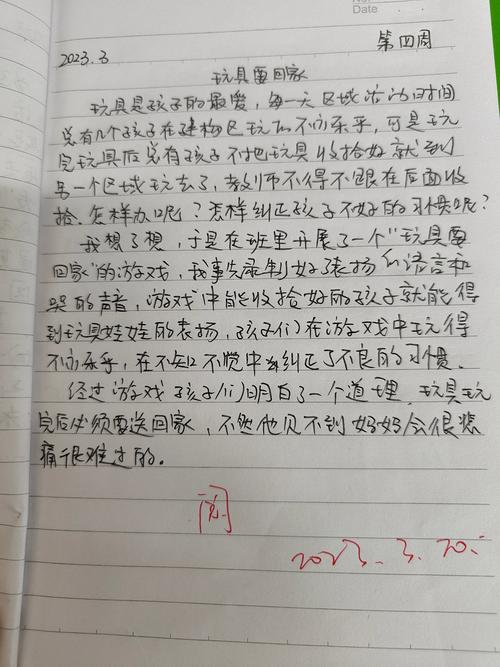 No
Date
2023.3 第四周
玩具要回家
玩具是孩子的最爱，每一天区域活动时间
总有几个孩子在建构区玩的不亦乐乎，可是玩
完玩具后总有孩子不把玩具收拾好就到
另一个区域玩去了，教师不得不跟在后面收
拾。怎样办呢？怎样纠正孩子不好的习惯呢？
我想了想，于是在班里开展了一个"玩具要
回家"的游戏，我事先录制好了表扬的语言和
哭的声音，游戏中能收拾好的孩子就能得
到玩具娃娃的表扬，孩子们在游戏中玩得
不亦乐乎，在不知不觉中纠正了不良的习惯。
经过游戏孩子们明白了一个道理，玩具玩
完后必须要送回家，不然他见不到妈妈会很悲
痛很难过的。
阅
2023.3.20.